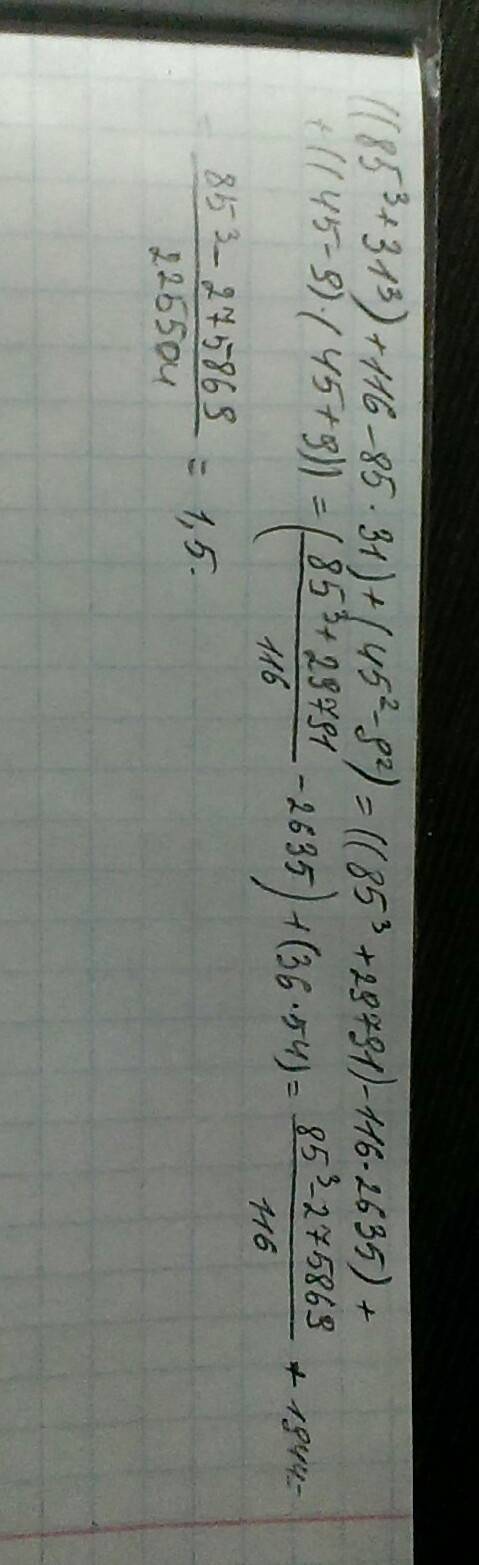 ((85³+31³)+116-85·31)+(45²-9²)=((85³+29791)-116·2635)+
+((45-9)·(45+9))=(85³+29791/116-2635)+(36·54)=85³-275869/116+1944=
=85³-275869/225504=1,5.